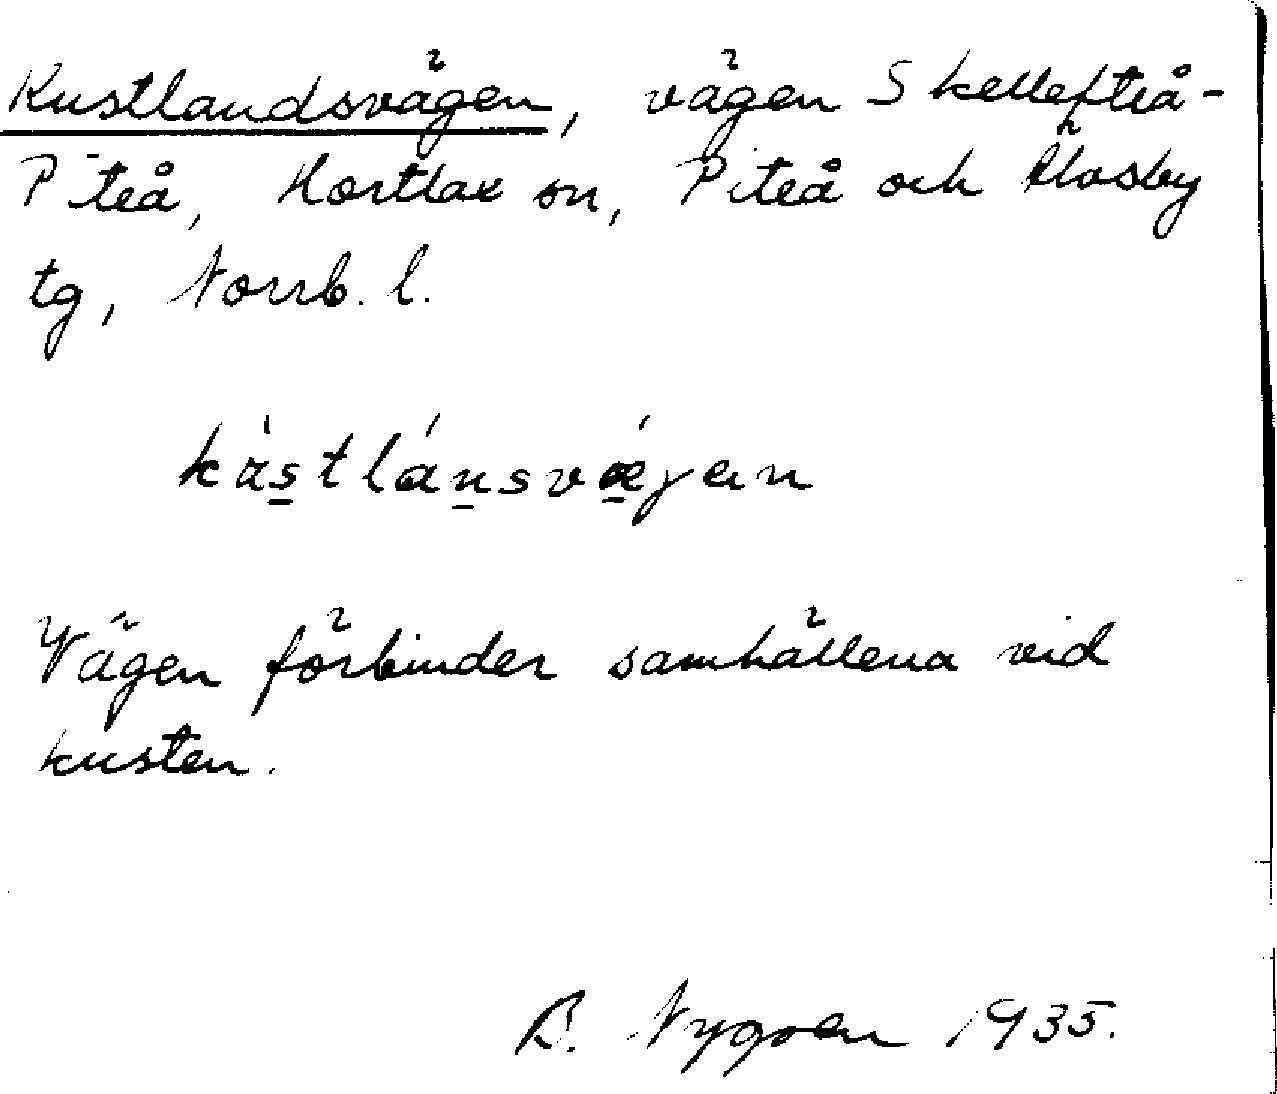 Kustlandsvägen, vägen Skellefteå-
Piteå, Hortlax sn, Piteå och Älvsby
tg, Norrb. l.
kùstlánsvǽgen
Vägen förbinder samhällena vid
kusten.
B. Nygren 1935.